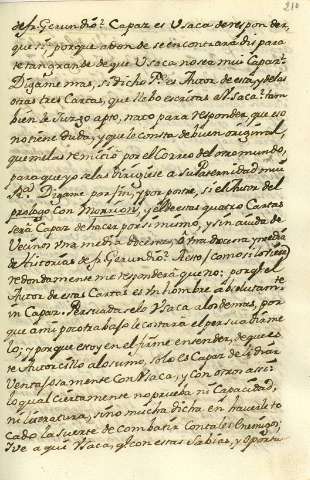 210
de fr. Gerundio? Capaz es Ysaca de responder,
que si; porque adonde se encontrará dispara
te tan grande de que Ysaca no sea mui Capaz?
Digame mas, si dicho Pe. es Autor de esta, y de las
otras tres Cartas, que llebo escritas al Ysaca? tam
bien le Juzgo apto, naco para responder, que eso
no tiene duda, y que le consta de buen original,
que me las remitió por el Correo del otro mundo,
para que yo las dirigiese a su Paternidad mui
Rda. Digame por fin, y por postre, si el Autor del
prologo con Morrion, y el de estas quatro Cartas
será Capaz de hacer por si mismo, y sin aiuda de
Vecinos una media docena, o una docena y media
de Historias de fr. Gerundio? A esto (como si lo viera)
redondamente me responderá que no; porque el
Autor de estas Cartas es un hombre absolutamte.
in Capaz. Persuadaselo Ysaca a los demas, por
que a mi poco trabajo le costara el persuadirme
lo; y porque estoy en el firme entender, de que es
te Autorcillo a lo sumo, solo es Capaz de lidiar
Ventajosamente con Ysaca, y con otros asse
lo qual ciertamente no prueba ni Capacidad,
ni literatura, sino mucha dicha en haverle to
cado la suerte de combatir con tales Enemigos;
Ive a qui Ysaca, q. con estas sabias, y oportu